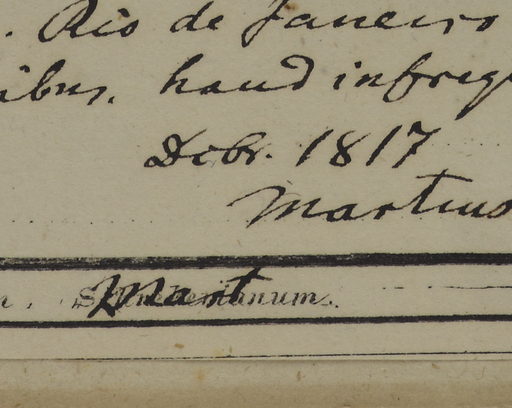 . Rio de Janeiro
ibus, haud infreq
Decbr. 1817
Martius
Mart